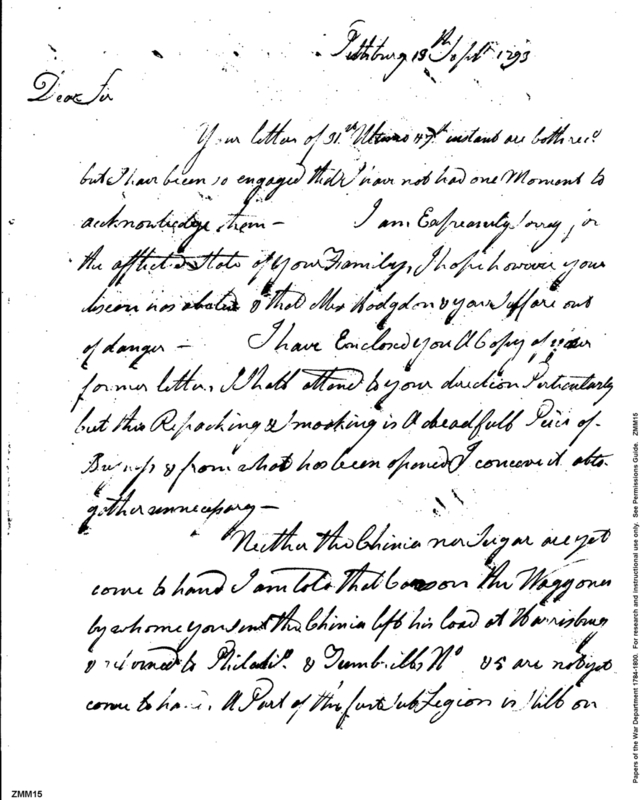 Pittsburg 13th Sept 1793
Dear Sir
Your letter of 31st Ultimo & 7th instant are both recd
but I have been so engaged that I have not had one Moment to
acknowledge them — I am Expressly Sorry for
the afflicted State of your Family, I hope however your
has abated & that Mrs Hodgdon & yourself are out
of danger — I have Enclosed you A Copy of your
former letter, I shall attend to your direction Perticularly
but this Repacking & Smooking is A dreadfull Peice of
Business & from what has been opened I conceive it alto-
gether unnecessary —
Neither the Chinia nor Sugar are yet
come to hand I am told that Carson the Waggoner
by whome you sent the Chinia left his load at Harrisburg
& returned to Philada & Turnbulls No & 5 are not yet
come to hand. A Part of the first Sub Legion is Still on
ZMM15
Papers of the War Department 1784-1800. For research and instructional use only. See Permissions Guide. ZMM15